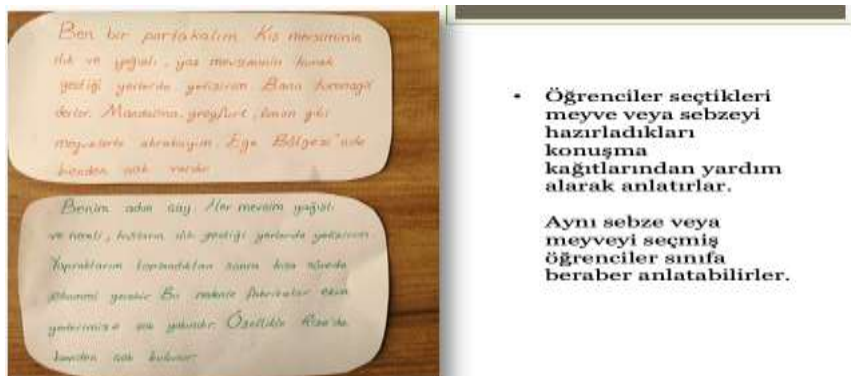 Ben bir portakalım. Kış mevsiminin
ılık ve yağışlı, yaz mevsiminin kurak
geçtiği yerlerde yetişirim. Bana
derler. Mandalina, greyfurt, limon gibi
meyvelerle akrabayım. Ege Bölgesi'nde
benden çok vardır.
Benim adım çay. Her mevsim yağışlı
ve nemli, kışların ılık geçtiği yerlerde yetişirim.
Yapraklarım toplandıktan sonra kısa sürede
işlenmesi gerekir. Bu nedenle fabrikalar ekim
yerlerimize çok yakındır. Özellikle Rize'de
benden çok bulunur.
• Öğrenciler seçtikleri
meyve veya sebzeyi
hazırladıkları
konuşma
kağıtlarından yardım
alarak anlatırlar.
Aynı sebze veya
meyveyi seçmiş
öğrenciler sınıfa
beraber anlatabilirler.